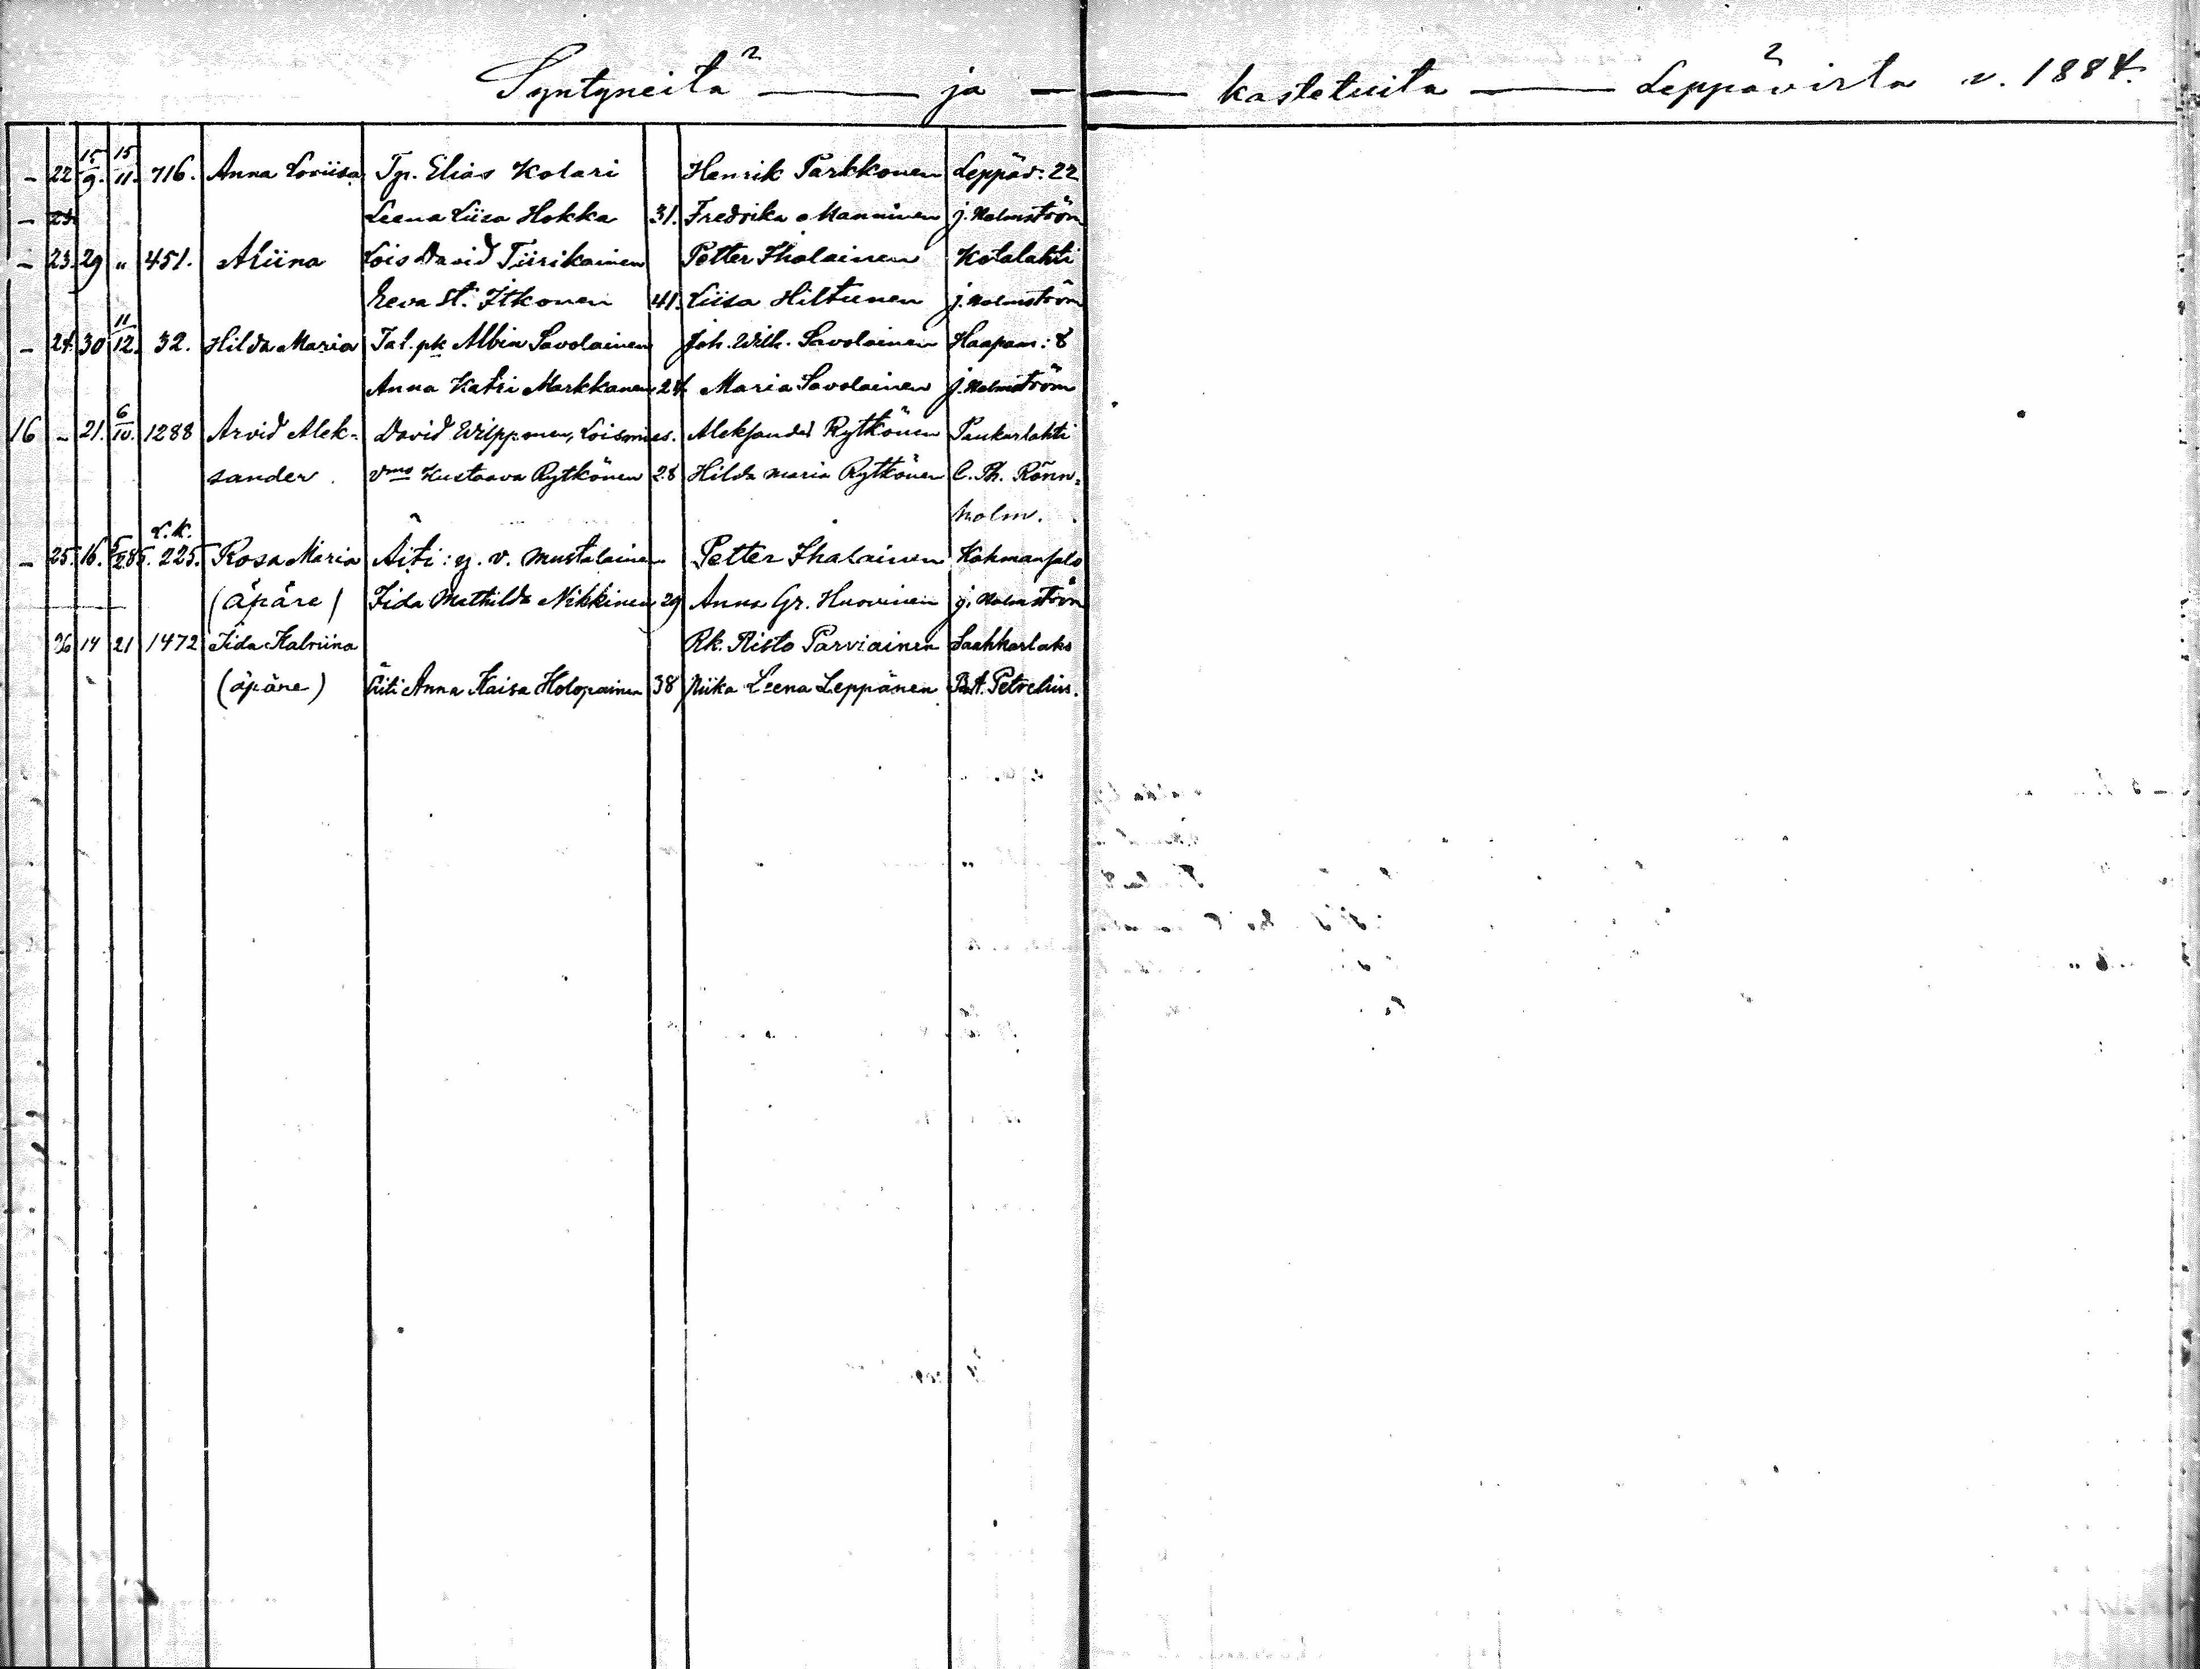 Syntyneitä — ja — kastetuita — Leppävirta v. 1884.
15 15
- 22 9. 11. 716. Anna Loviisa Tp. Elias Kolari Henrik Parkkonen Leppäv: 22
- 23. Leena Liisa Hokka 31. Fredrika Manninen j. Holmström
- 23. 29 " 451. Aliina Lois David Tiirikainen Petter Ihalainen Kotalahti
Eeva St. Itkonen 41. Liisa Hiltunen j. Holmström
11
- 24. 30 12. 32. Hilda Maria Tal. pk Albin Savolainen Joh. Wilh. Savolainen Haapam: 8
Anna Katri Markkanen 24. Maria Savolainen j. Holmström
6
16 - 21. 10. 1288 Arvid Alek- David Wilpponen, Loismies. Aleksander Rytkönen Paukarlahti
sander vmo Kustaava Rytkönen 28 Hilda Maria Rytkönen C. Th. Rönn-
holm.
L.K.
- 25. 16. 5/2 85. 225. Rosa Maria Äiti: ej. v. mustalainen Petter Ihalainen Kohmansalo
(äpäre) Iida Mathilda Nikkinen 29 Anna Gr. Huovinen j. Holmström
26 14 21 1472 Iida Katriina Rk. Risto Parviainen Saahkarlaks
(äpäre) Äiti Anna Kaisa Holopainen 38 Miika Leena Leppänen B.A. Petrelius.